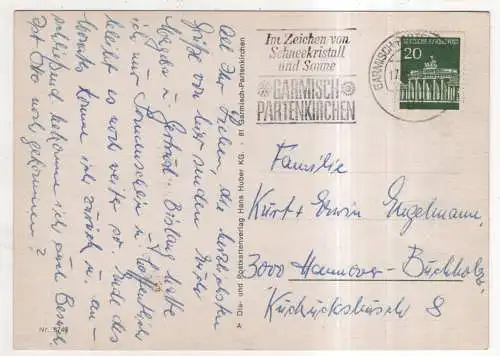 All Ihr Lieben, die herzlichsten
Grüße von hier senden Euch
Martha u. Gertrud. Bislang hatte
ich nur Sonnenschein u. hoffentlich
bleibt es noch weiter so. Ende des
Monats komme ich zurück u. an-
schließend bekomme ich auch Besuch.
Ist Otto noch gekommen?
Nr. 5746
A Dia- und Postkartenverlag Hans Huber KG. · 81 Garmisch-Partenkirchen
Im Zeichen von
Schneekristall
und Sonne
GARMISCH
PARTENKIRCHEN
GARMISCH
17.
DEUTSCHE BUNDESPOST
20
Familie
Kurt + Erwin Engelmann
3000 Hannover-Buchholz
Kuckucksbusch 8